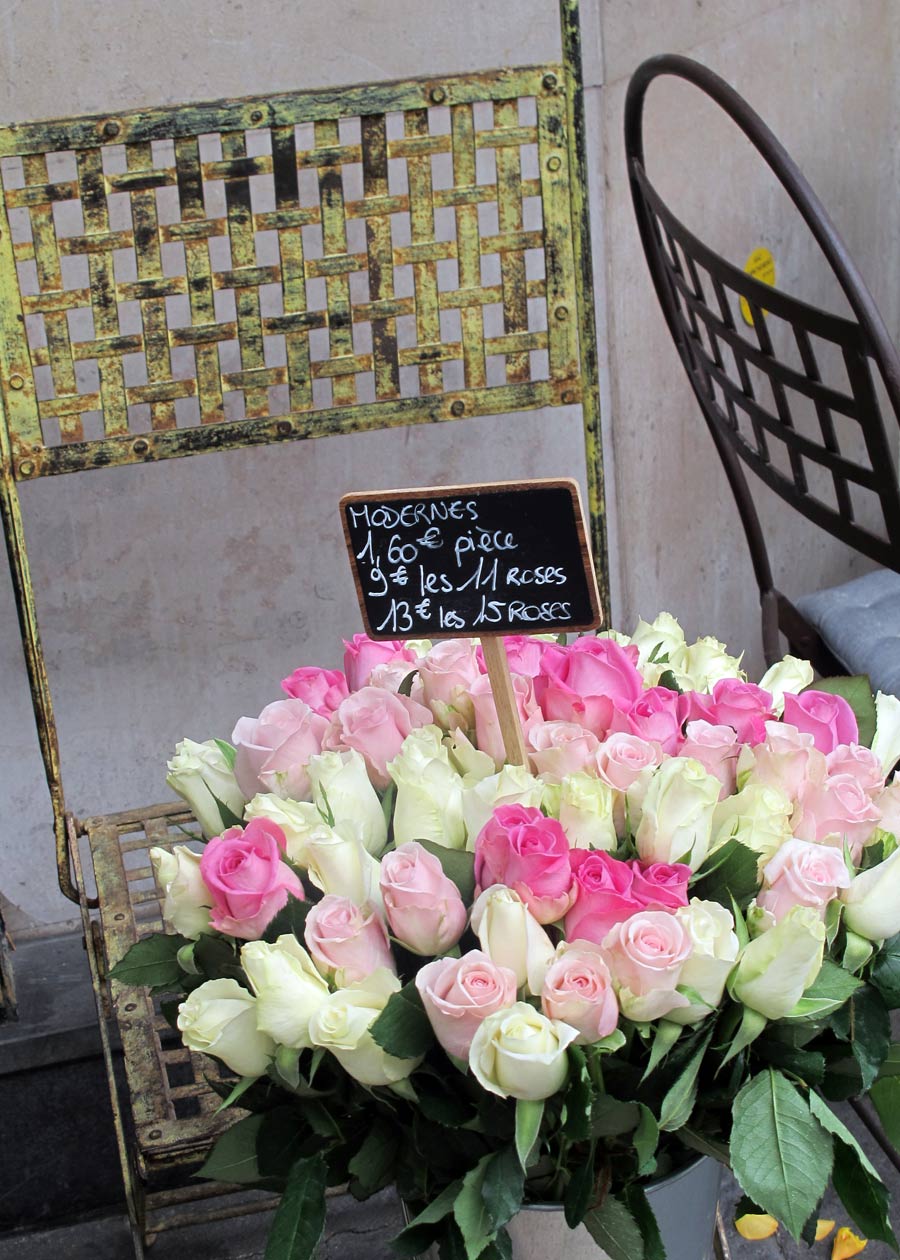 MODERNES
1,60€ pièce
9€ les 11 ROSES
13€ les 15 ROSES